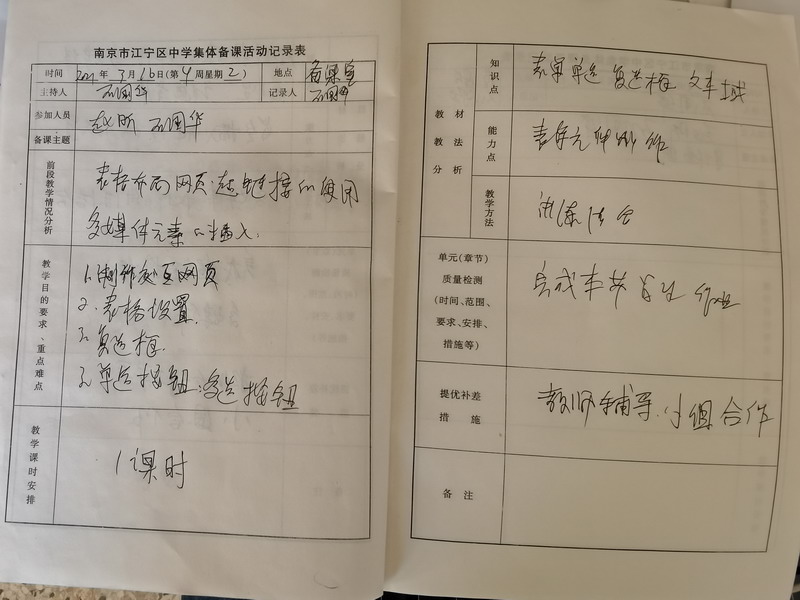 南京市江宁区中学集体备课活动记录表
时间 2021年3月16日(第4周星期2) 地点 备课室
主持人 石国华 记录人 石国华
参加人员 赵昕 石国华
备课主题
前段教学情况分析
表格布局网页.超链接的使用
多媒体元素的插入.
教学目的要求、重点难点
1.制作主页网页
2.表格设置.
3.复选框.
单选按钮.
教学课时安排
1课时
教材教法分析
知识点
表单单选 复选框 文本域
能力点
表单元件制作
教学方法
讲练结合
单元(章节)
质量检测
(时间、范围、
要求、安排、
措施等)
完成本节 作业
提优补差
措施
教师辅导.小组合作
备注